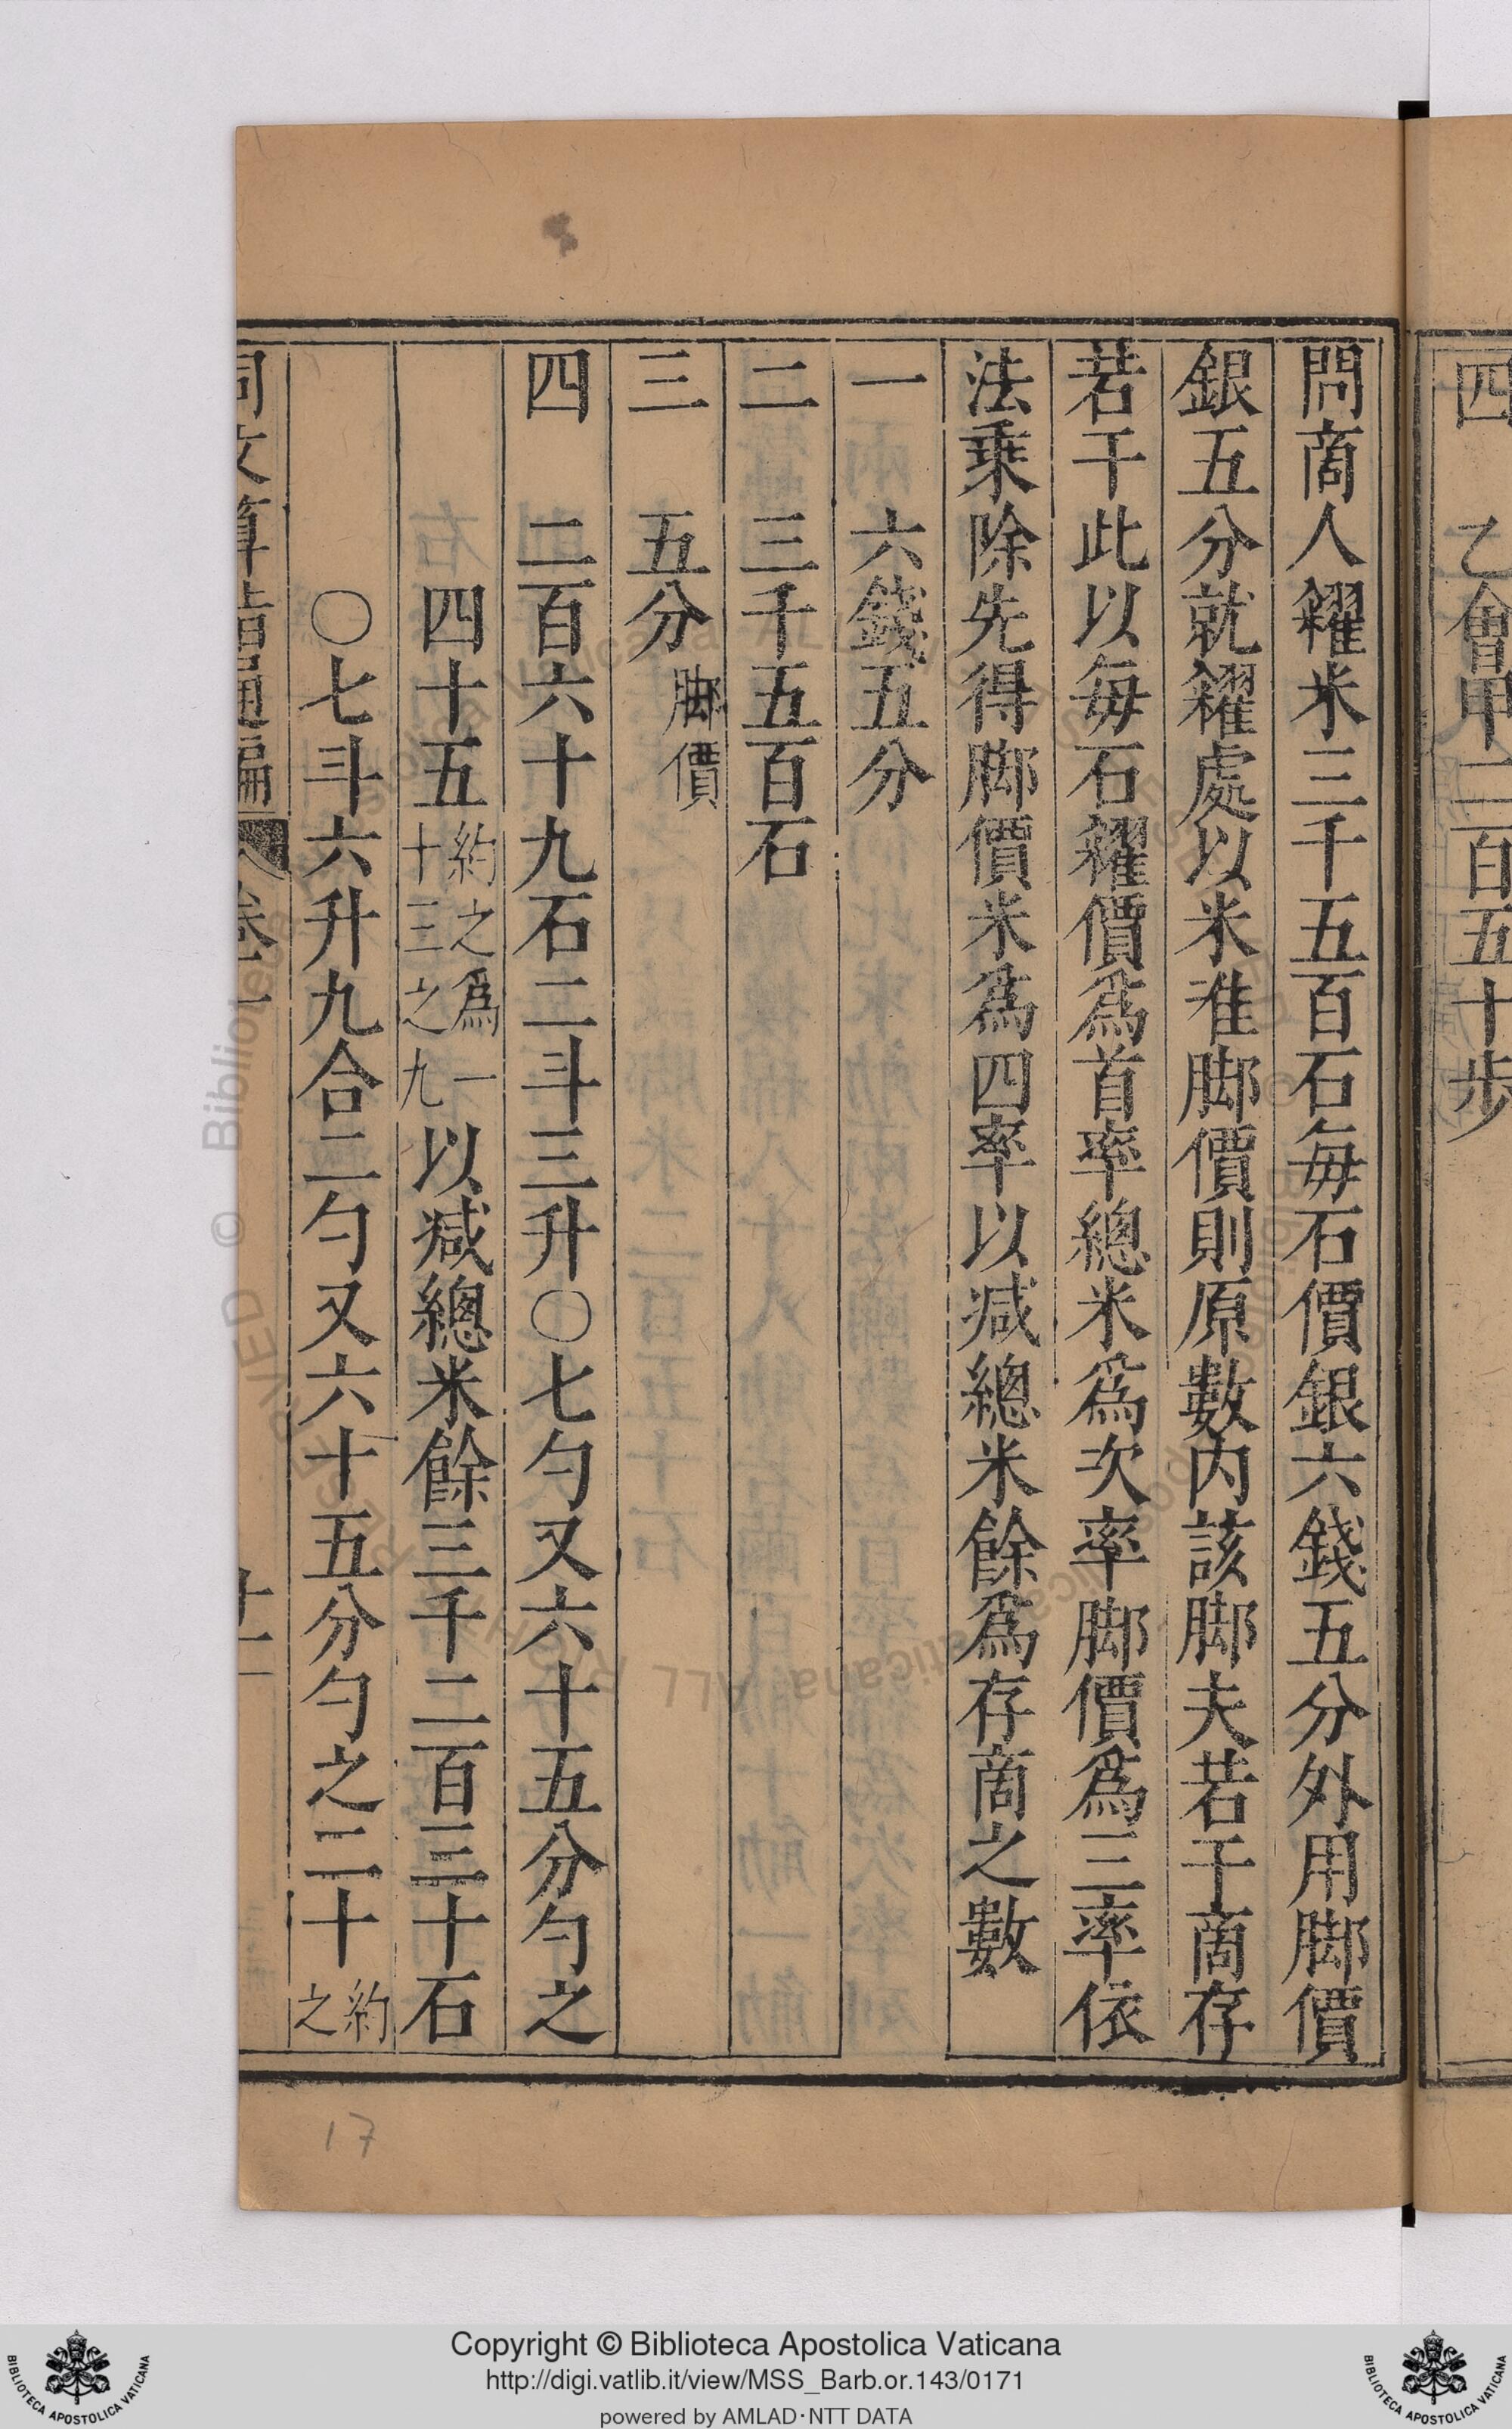 四　乙會甲二百五十步
問商人糴米三千五百石每石價銀六錢五分外用脚價
銀五分就糴處以米准脚價則原數内該脚夫若干商存
若干此以每石糴價爲首率總米爲次率脚價爲三率依
法乘除先得脚價米爲四率以减總米餘爲存商之數
一　六錢五分
二　三千五百石
三　五分脚價
四　二百六十九石二斗三升〇七勺又六十五分勺之
四十五約之爲一十三之九以减總米餘三千二百三十石
〇七斗六升九合二勺又六十五分勺之二十約之
同文算指通編
卷一
十二
17
Copyright © Biblioteca Apostolica Vaticana
http://digi.vatlib.it/view/MSS_Barb.or.143/0171
powered by AMLAD·NTT DATA
BIBLIOTECA APOSTOLICA VATICANA
BIBLIOTECA APOSTOLICA VATICANA